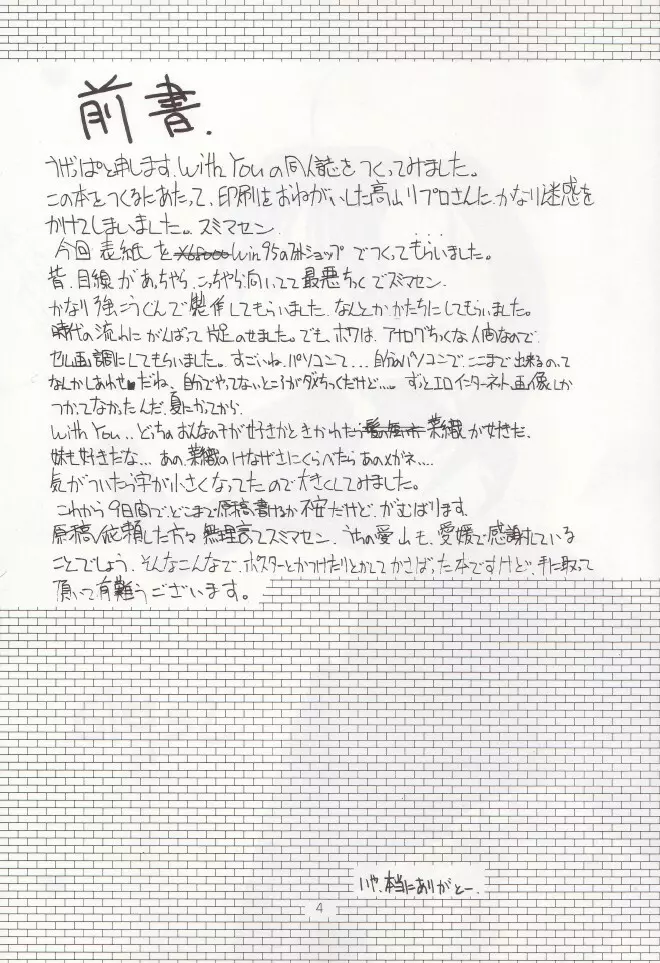 前書.
うげっぱと申します. With Youの同人誌をつくってみました。
この本をつくるにあたって、印刷をおねがいした高山リプロさんに、かなり迷惑を
かけてしまいました。スミマセン.
今回 表紙を X68000 Win95のフォトショップ でつくってもらいました。
昔、目線があっちゃら、こっちゃら向いてて 最悪ちくでスミマセン.
かなり強こうぐんで製作してもらいました. なんとか かたちにしてもらいました。
時代の流れに がんばって 片足のせました。でも、ボクは、アナログちくな人間なので、
セル画調にしてもらいました。すごいね、パソコンて... 自分のパソコンで、ここまで出来るのって
なんかしあわせ♥だね、自分でやってないところがダメちっくだけど...。ずっとエロインターネット画像しか
つかってなかったんだ.夏にかってから.
With You.. どっちのおんなの子が好きかときかれたら 菜織が好きだ、
妹も好きだな... あの、菜織のけなげさにくらべたら あのメガネ....
気がついたら字が小さくなってたので大きくしてみました。
これから9日間で、どこまで原稿、書けるか不安だけど、がむばります.
原稿依頼した方々 無理言ってスミマセン. うちの愛山も、愛媛で感謝している
ことでしょう. そんなこんなで、ポスターとかつけたりとかしてかさばった本ですけど、手に取って
頂いて有難うございます。
いや、本当にありがとー.
4